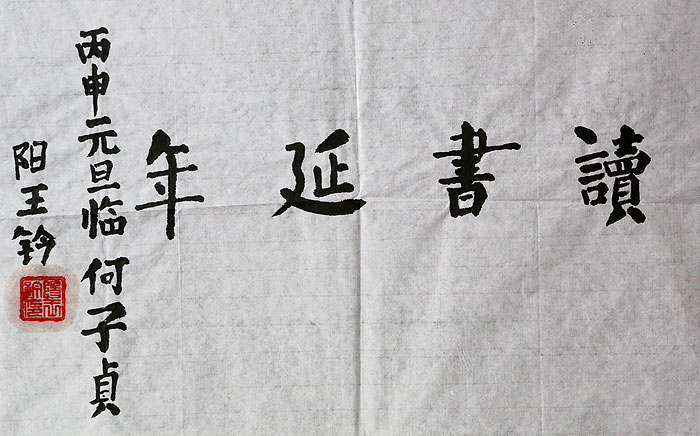 讀書延年
丙申元旦临何子貞
阳王鈐